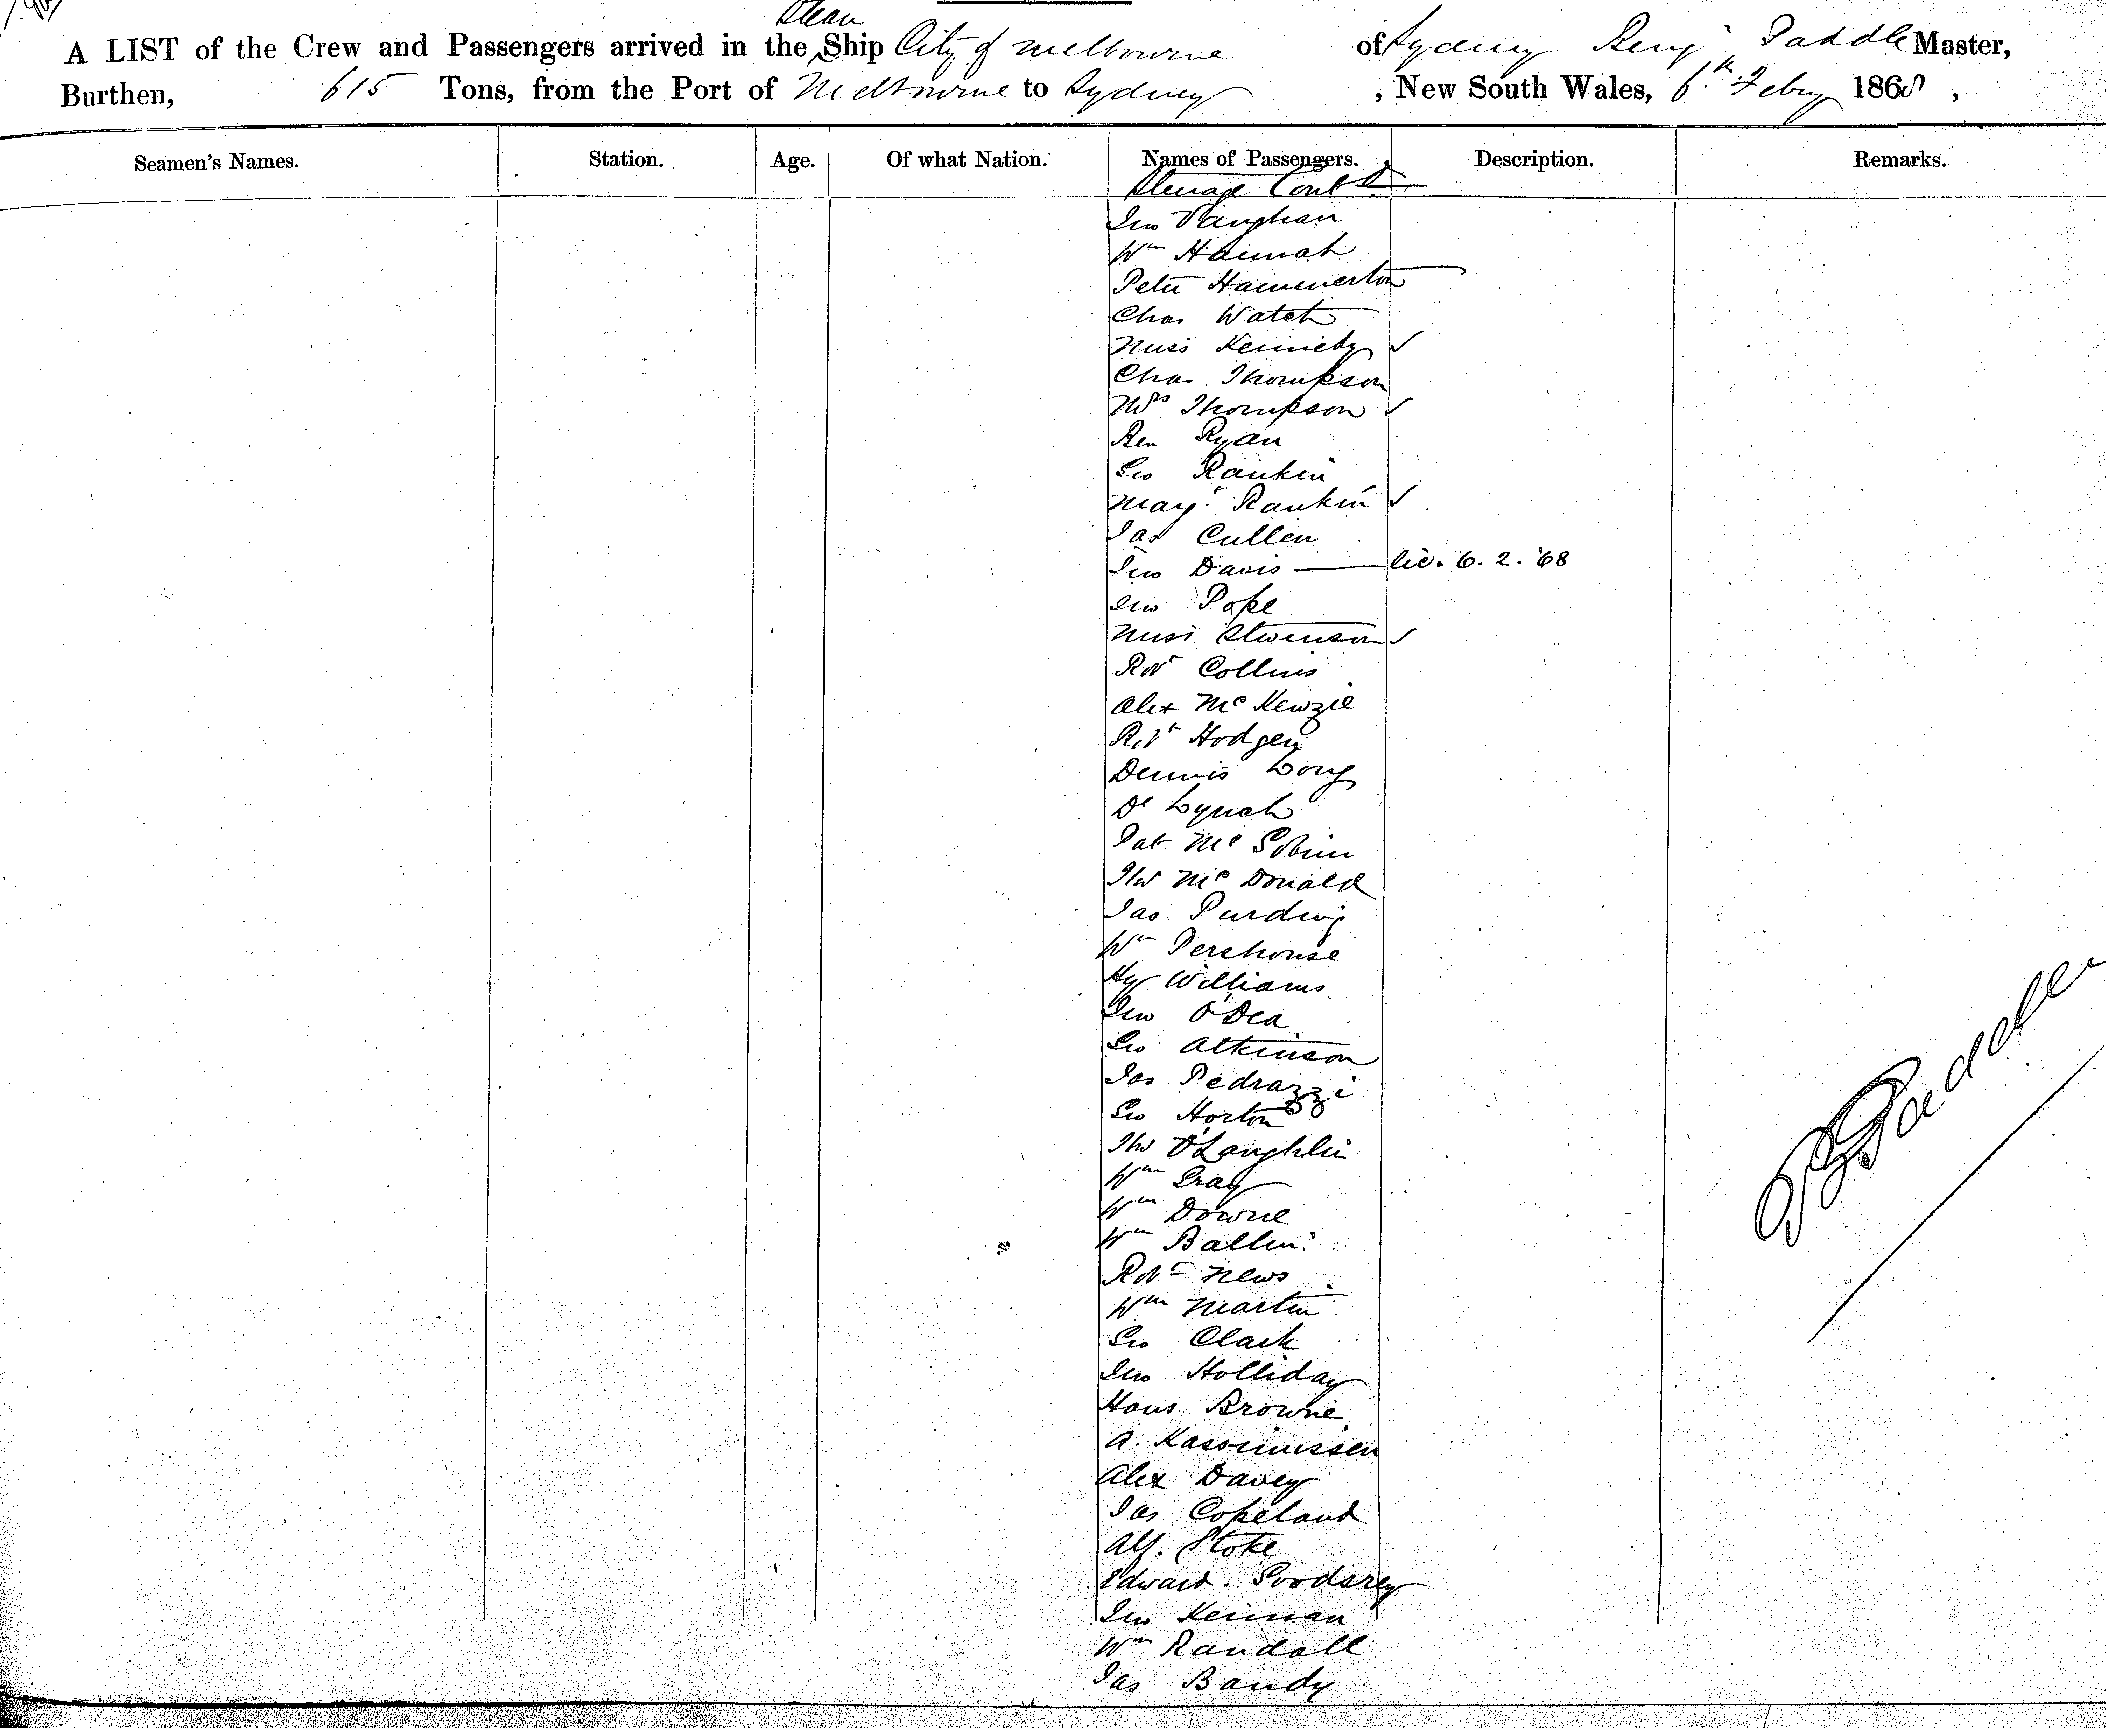 Steam
A LIST of the Crew and Passengers arrived in the Ship City of Melbourne of Sydney Benj Paddle Master,
Burthen, 615 Tons, from the Port of Melbourne to Sydney , New South Wales, 6th Feby 1868 ,
Seamen's Names. Station. Age. Of what Nation. Names of Passengers. Description. Remarks.
Steerage Contd
Jno Vaughan
Wm Hannah
Peter Hammerton
Chas Watch
Miss Kennedy
Chas Thompson
Mrs Thompson
Ren Ryan
Geo Rankin
Mary Rankin
Jas Cullen
Jno Davis — lic. 6. 2. '68
Jno Pope
Miss Stevenson
Robt Collins
Alex McKenzie
Robt Hodgen
Dennis Long
Dl Lynch
Pat Mc
Thos McDonald
Jas Purdwig
Wm Perehouse
Hy Williams
Jno O'Dea
Geo Atkinson
Jas Pedrazzi
Geo Horton
Thos O'Laughlin
Wm Gray
Wm Downe
Wm Ballin
Robt News
Wm Martin
Geo Clark
Jno Holliday
Hans Browne
A. Kassimissen
Alex Davey
Jas Copeland
Alf. Stoke
Edward Goodsrey
Jno Keirnan
Wm Randall
Jas Bandy
B Paddle